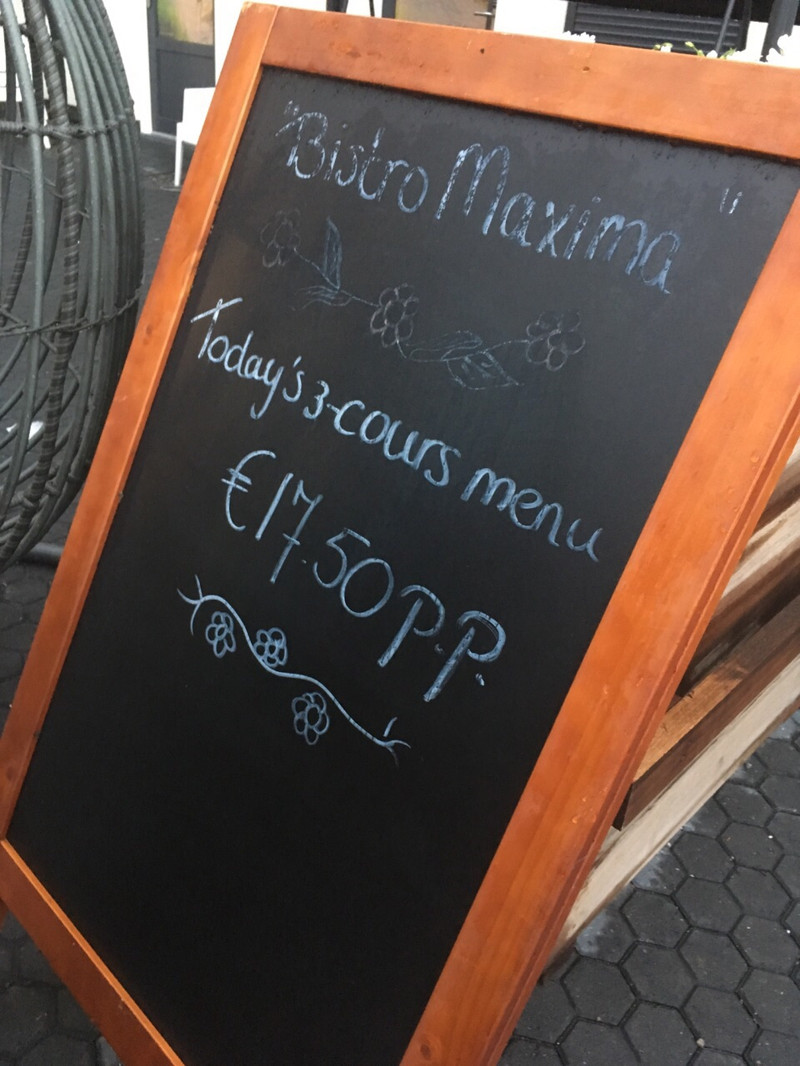 "Bistro Maxima"
Today's 3-cours menu
€17.50 p.p.